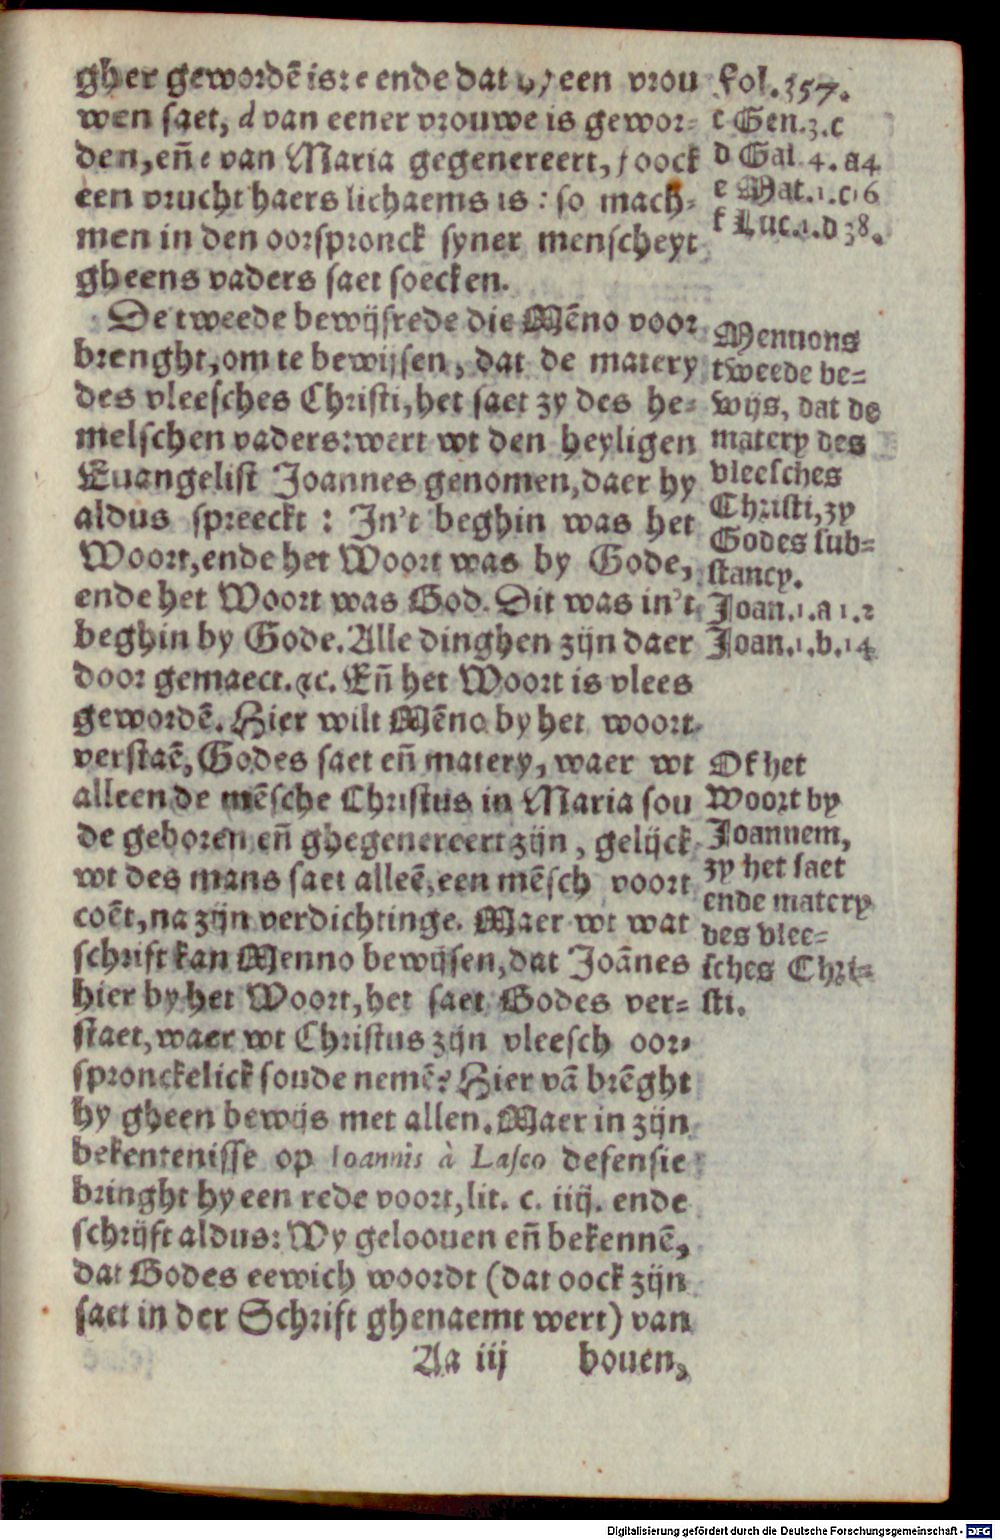 gher gewordē is: c ende dat hy een vrou
wen saet, d van eener vrouwe is gewor-
den, eñ e van Maria gegenereert, f oock
een vrucht haers lichaems is: so mach-
men in den oorspronck syner menscheyt
gheens vaders saet soecken.
De tweede bewijsrede die Mēno voor
brenght, om te bewijsen, dat de matery
des vleesches Christi, het saet zy des he-
melschen vaders: wert wt den heyligen
Euangelist Joannes genomen, daer hy
aldus spreeckt: In't beghin was het
Woort, ende het Woort was by Gode,
ende het Woort was God. Dit was in't
beghin by Gode. Alle dinghen zijn daer
door gemaect. &c. Eñ het Woort is vlees
gewordē. Hier wilt Mēno by het woort
verstaē, Godes saet eñ matery, waer wt
alleen de mēsche Christus in Maria sou
de geboren eñ ghegenereert zijn, gelijck
wt des mans saet alleē, een mēsch voort
coēt, na zijn verdichtinge. Maer wt wat
schrift kan Menno bewijsen, dat Joānes
hier by het Woort, het saet Godes ver-
staet, waer wt Christus zijn vleesch oor-
spronckelick soude nemē? Hier vā brēght
hy gheen bewijs met allen. Maer in zijn
bekentenisse op Ioannis à Lasco defensie
bringht hy een rede voort, lit. c. iiij. ende
schrijft aldus: Wy geloouen eñ bekennē,
dat Godes eewich woordt (dat oock zijn
saet in der Schrift ghenaemt wert) van
Aa iij bouen,
Fol. 357.
c Gen. 3. c
d Gal. 4. a 4
e Mat. 1. c 16
f Luc. 1. d 38.
Mennons
tweede be-
wijs, dat de
matery des
vleesches
Christi, zy
Godes sub-
stancy.
Joan. 1. a 1. 2
Joan. 1. b. 14
Of het
Woort by
Joannem,
zy het saet
ende matery
des vlee-
sches Chri-
sti.
Digitalisierung gefördert durch die Deutsche Forschungsgemeinschaft - DFG